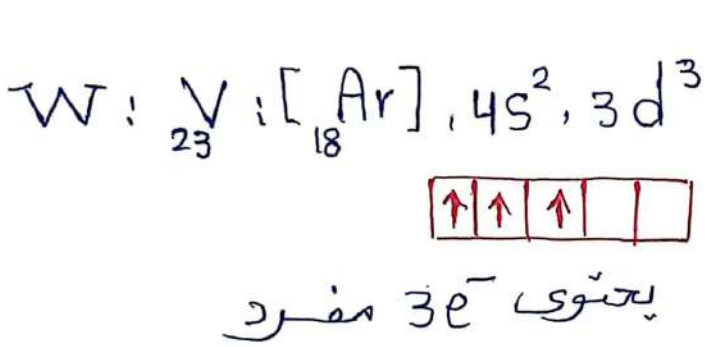 W : ₂₃V : [₁₈Ar] , 4s², 3d³
↑ ↑ ↑
يحتوى 3e⁻ مفرد